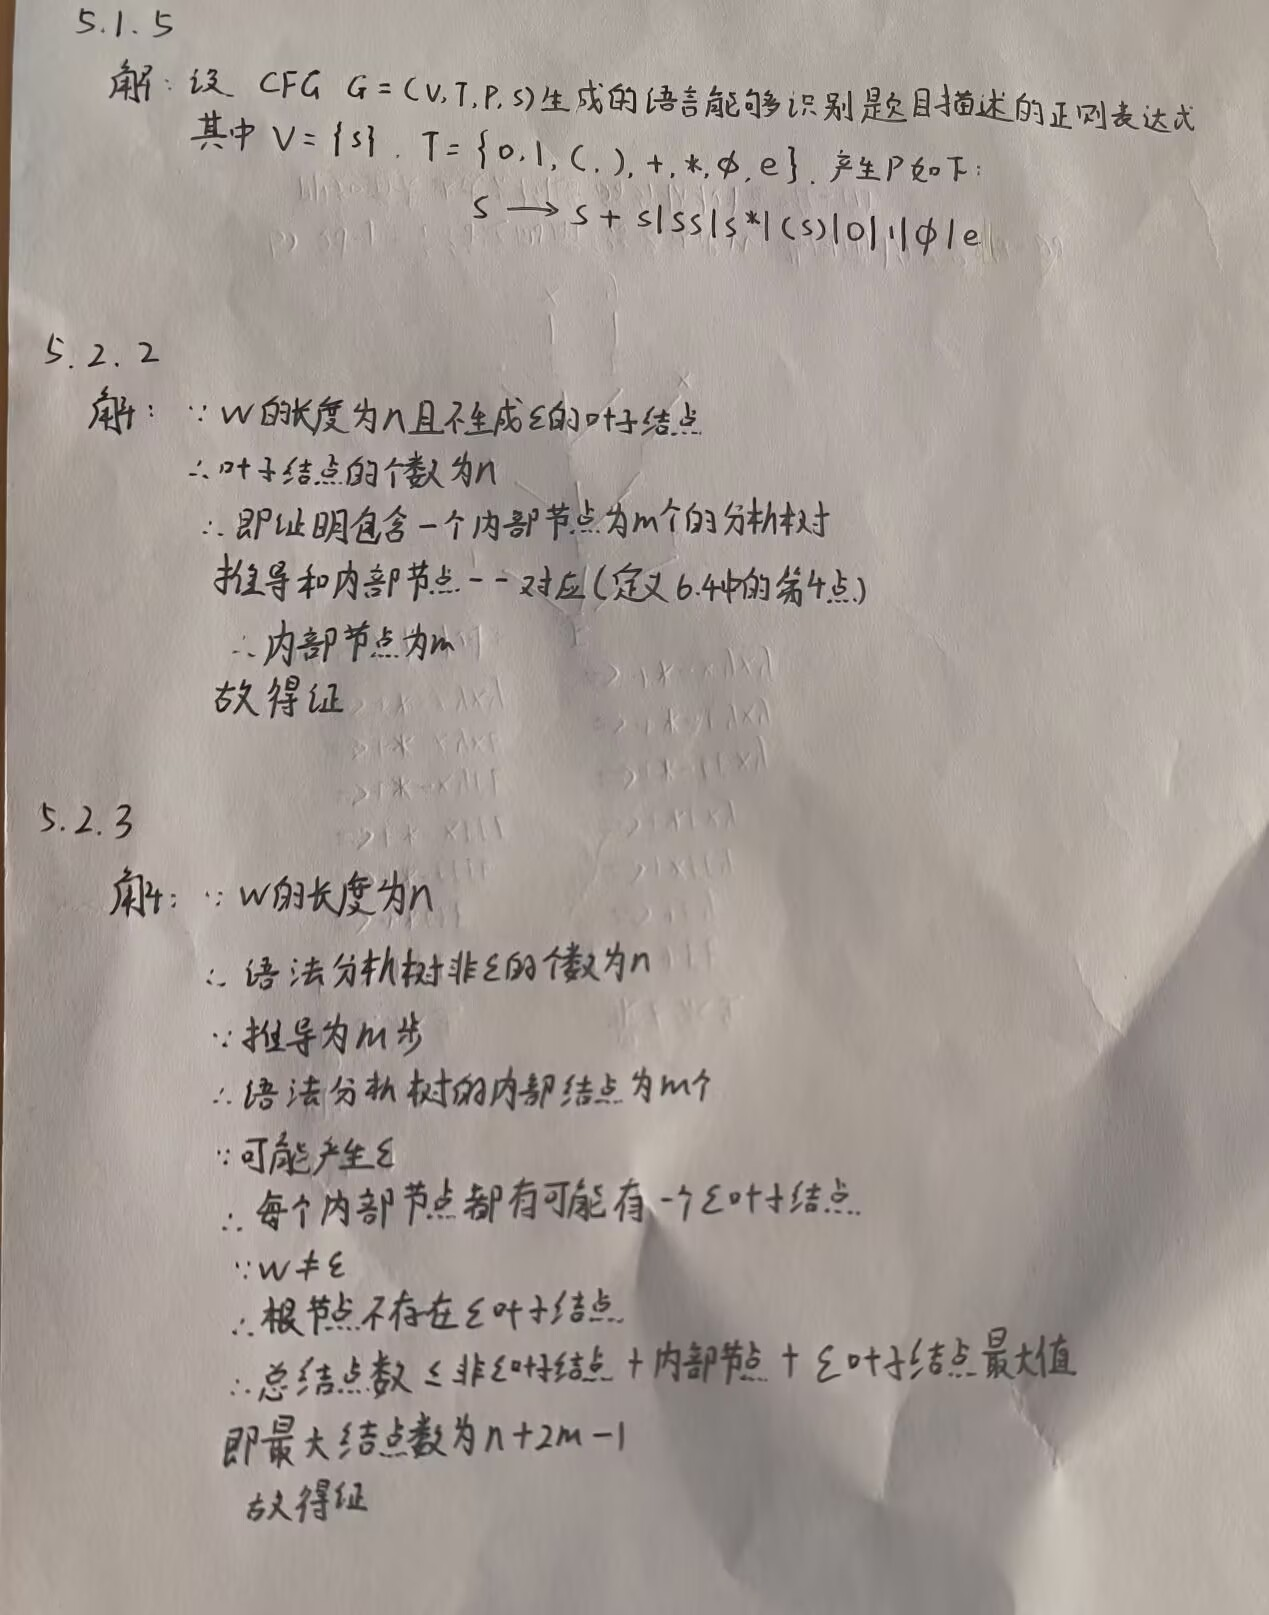 5.1.5
解: 设 CFG G=(V,T,P,S)生成的语言能够识别是题目描述的正则表达式
其中 V={S}. T={0,1,(,),+,*,φ,e}. 产生P如下:
S → S+S|SS|S*|(S)|0|1|φ|e
5.2.2
解: ∵ w的长度为n且不生成ε的叶子结点
∴叶子结点的个数为n
∴即证明包含一个内部节点为m个的分析树
推导和内部节点一一对应(定义6.4中的第4点)
∴内部节点为m
故得证
5.2.3
解: ∵ w的长度为n
∴语法分析树非ε的个数为n
∵推导为m步
∴语法分析树的内部结点为m个
∵可能产生ε
∴每个内部节点都有可能有一个ε叶子结点
∵w≠ε
∴根节点不存在ε叶子结点
∴总结点数≤非ε叶子结点+内部节点+ε叶子结点最大值
即最大结点数为n+2m-1
故得证